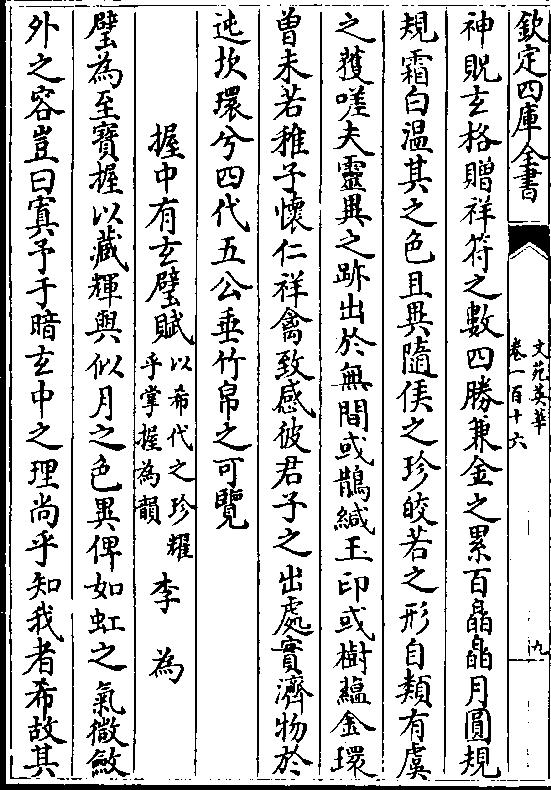 欽定四庫全書
文苑英華
卷一百十六
九
神貺玄格贈祥符之數四勝兼金之累百皛皛月圓規
規霜白温其之色且異隨侯之珍皎若之形自類有虞
之獲嗟夫靈異之跡出於無間或鵲緘玉印或樹藴金環
曾未若稚子懷仁祥禽致感彼君子之出處實濟物於
迍坎環兮四代五公垂竹帛之可覽
握中有玄璧賦以希代之珍耀乎掌握為韻 李為
璧為至寶握以藏輝與似月之色異俾如虹之氣微斂
外之容豈曰寘予于暗玄中之理尚乎知我者希故其